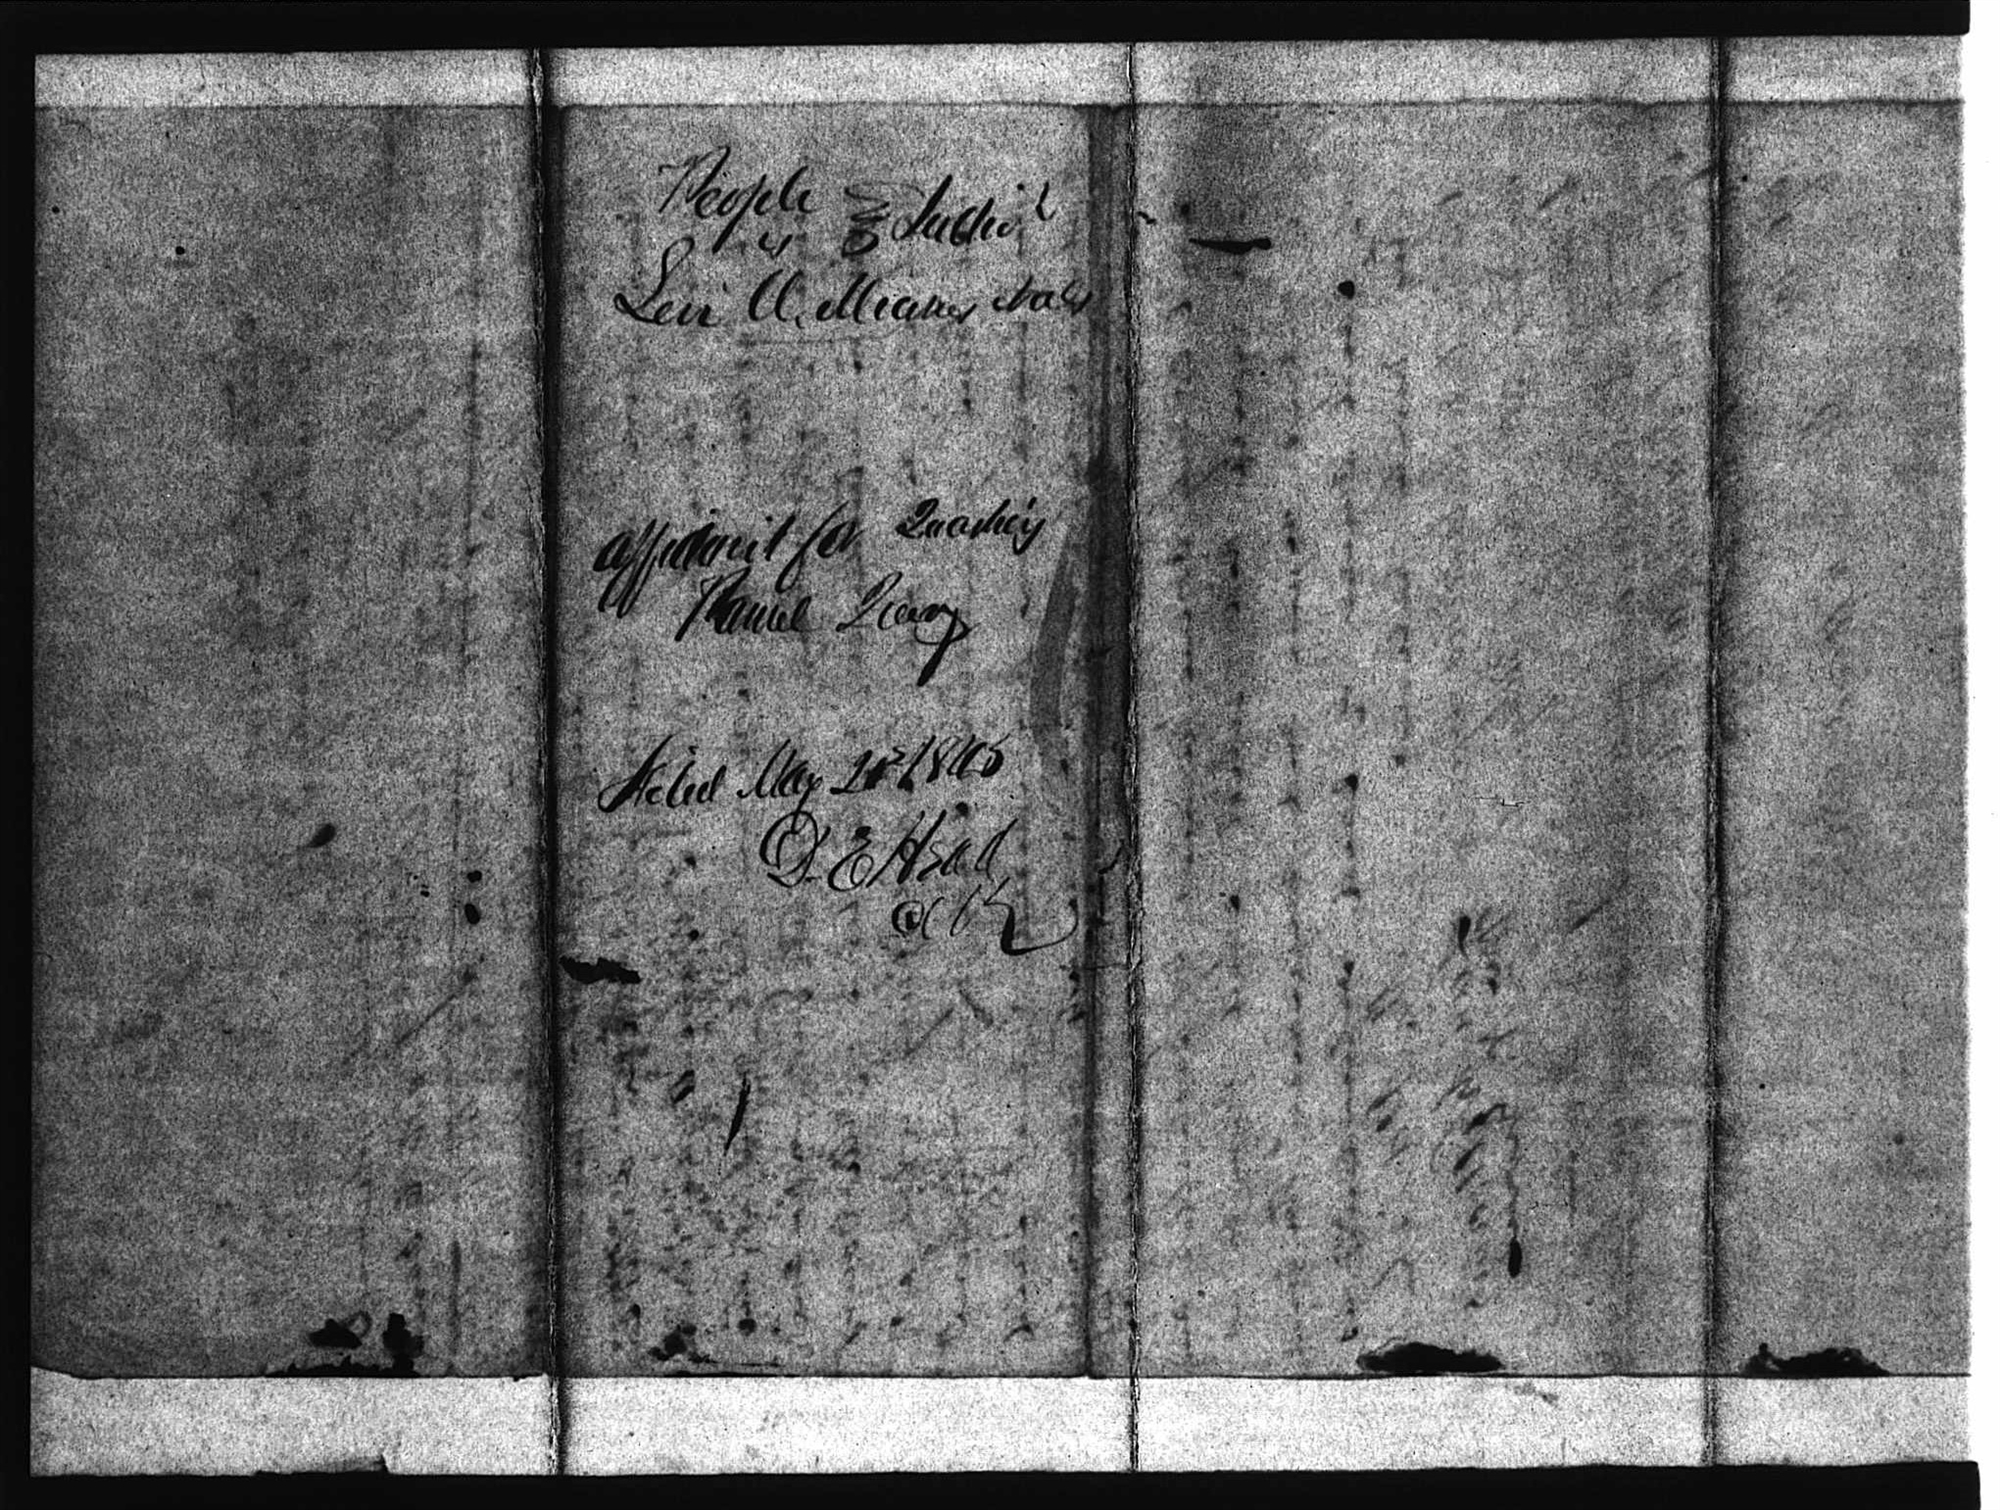 People
vs } Indict
Levi Williams et als
affidavit for Quashing
Pannel Jury
Filed May 21st 1845
D. E. Head
Clk